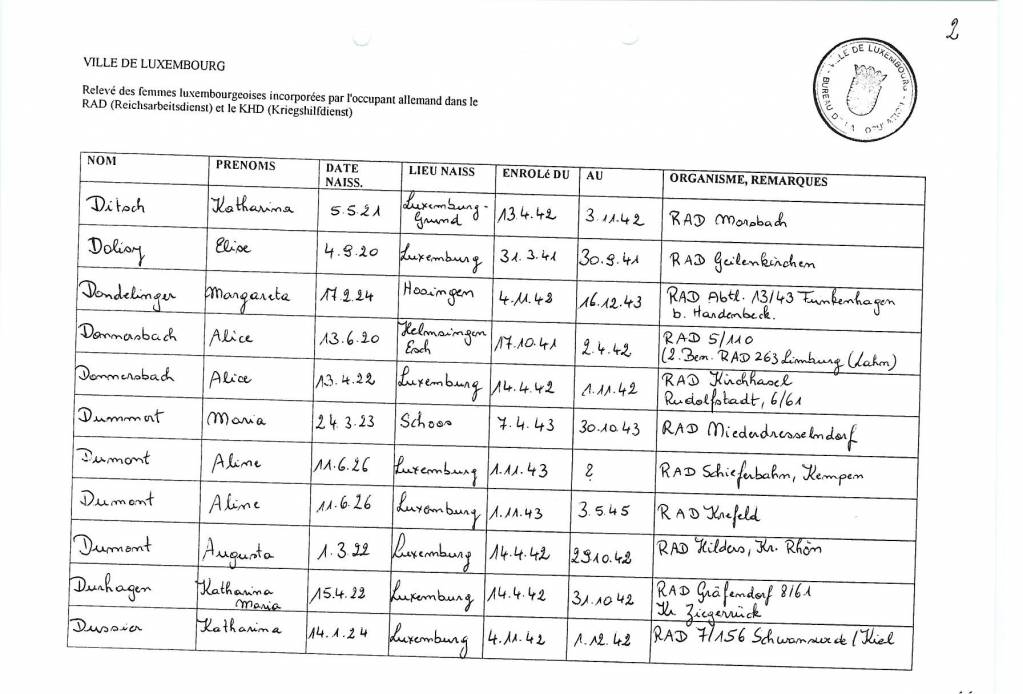 2
VILLE DE LUXEMBOURG
Relevé des femmes luxembourgeoises incorporées par l'occupant allemand dans le
RAD (Reichsarbeitsdienst) et le KHD (Kriegshilfdienst)
VILLE DE LUXEMBOURG
NOM PRENOMS DATE NAISS. LIEU NAISS ENROLé DU AU ORGANISME, REMARQUES
Ditsch Katharina 5.5.21 Luxemburg-Grund 13.4.42 3.11.42 RAD Morsbach
Dolisy Elise 4.9.20 Luxemburg 31.3.41 30.9.41 RAD Geilenkirchen
Dondelinger Margareta 17.2.24 Hosingen 4.11.42 16.12.43 RAD Abtl. 13/43 Funkenhagen
b. Hardenbeck.
Donnersbach Alice 13.6.20 Helmsingen Esch 17.10.41 2.4.42 RAD 5/110
(2. Ben. RAD 263 Limburg (Lahn)
Donnersbach Alice 13.4.22 Luxemburg 14.4.42 1.11.42 RAD Kirchhasel
Rudolfstadt, 6/61
Dummort Maria 24.3.23 Schoos 7.4.43 30.10.43 RAD Niederdresselndorf
Dumont Aline 11.6.26 Luxemburg 1.11.43 ? RAD Schieferbahn, Kempen
Dumont Aline 11.6.26 Luxemburg 1.11.43 3.5.45 RAD Krefeld
Dumont Augusta 1.3.22 Luxemburg 14.4.42 29.10.42 RAD Hilders, Kr. Rhön
Durhagen Katharina Maria 15.4.22 Luxemburg 14.4.42 31.10.42 RAD Gräfendorf 8/61
Kr. Ziegerrück
Dussier Katharina 14.1.24 Luxemburg 4.11.42 1.12.42 RAD 7/156 /Kiel